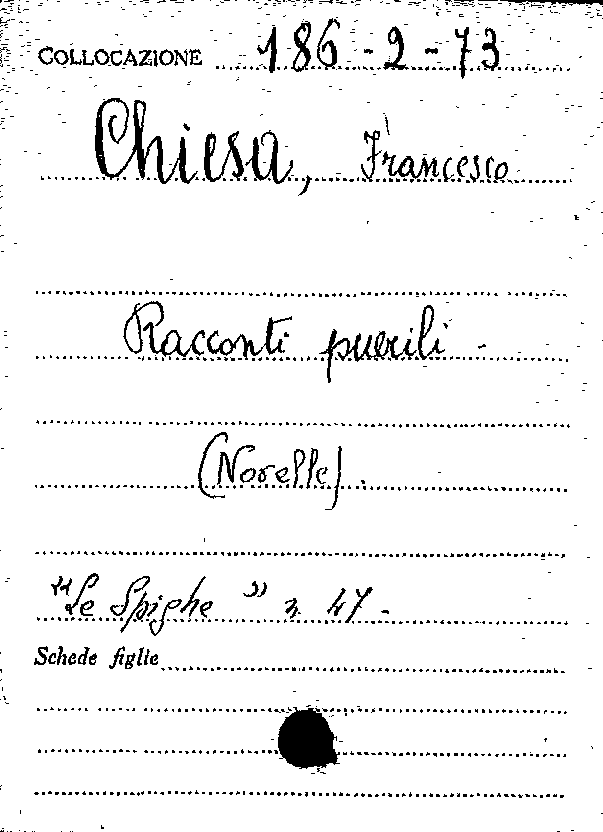 COLLOCAZIONE 186-2-73
Chiesa, Francesco
Racconti puerili -
(Novelle).
"Le Spighe" n. 47 -
Schede figlie